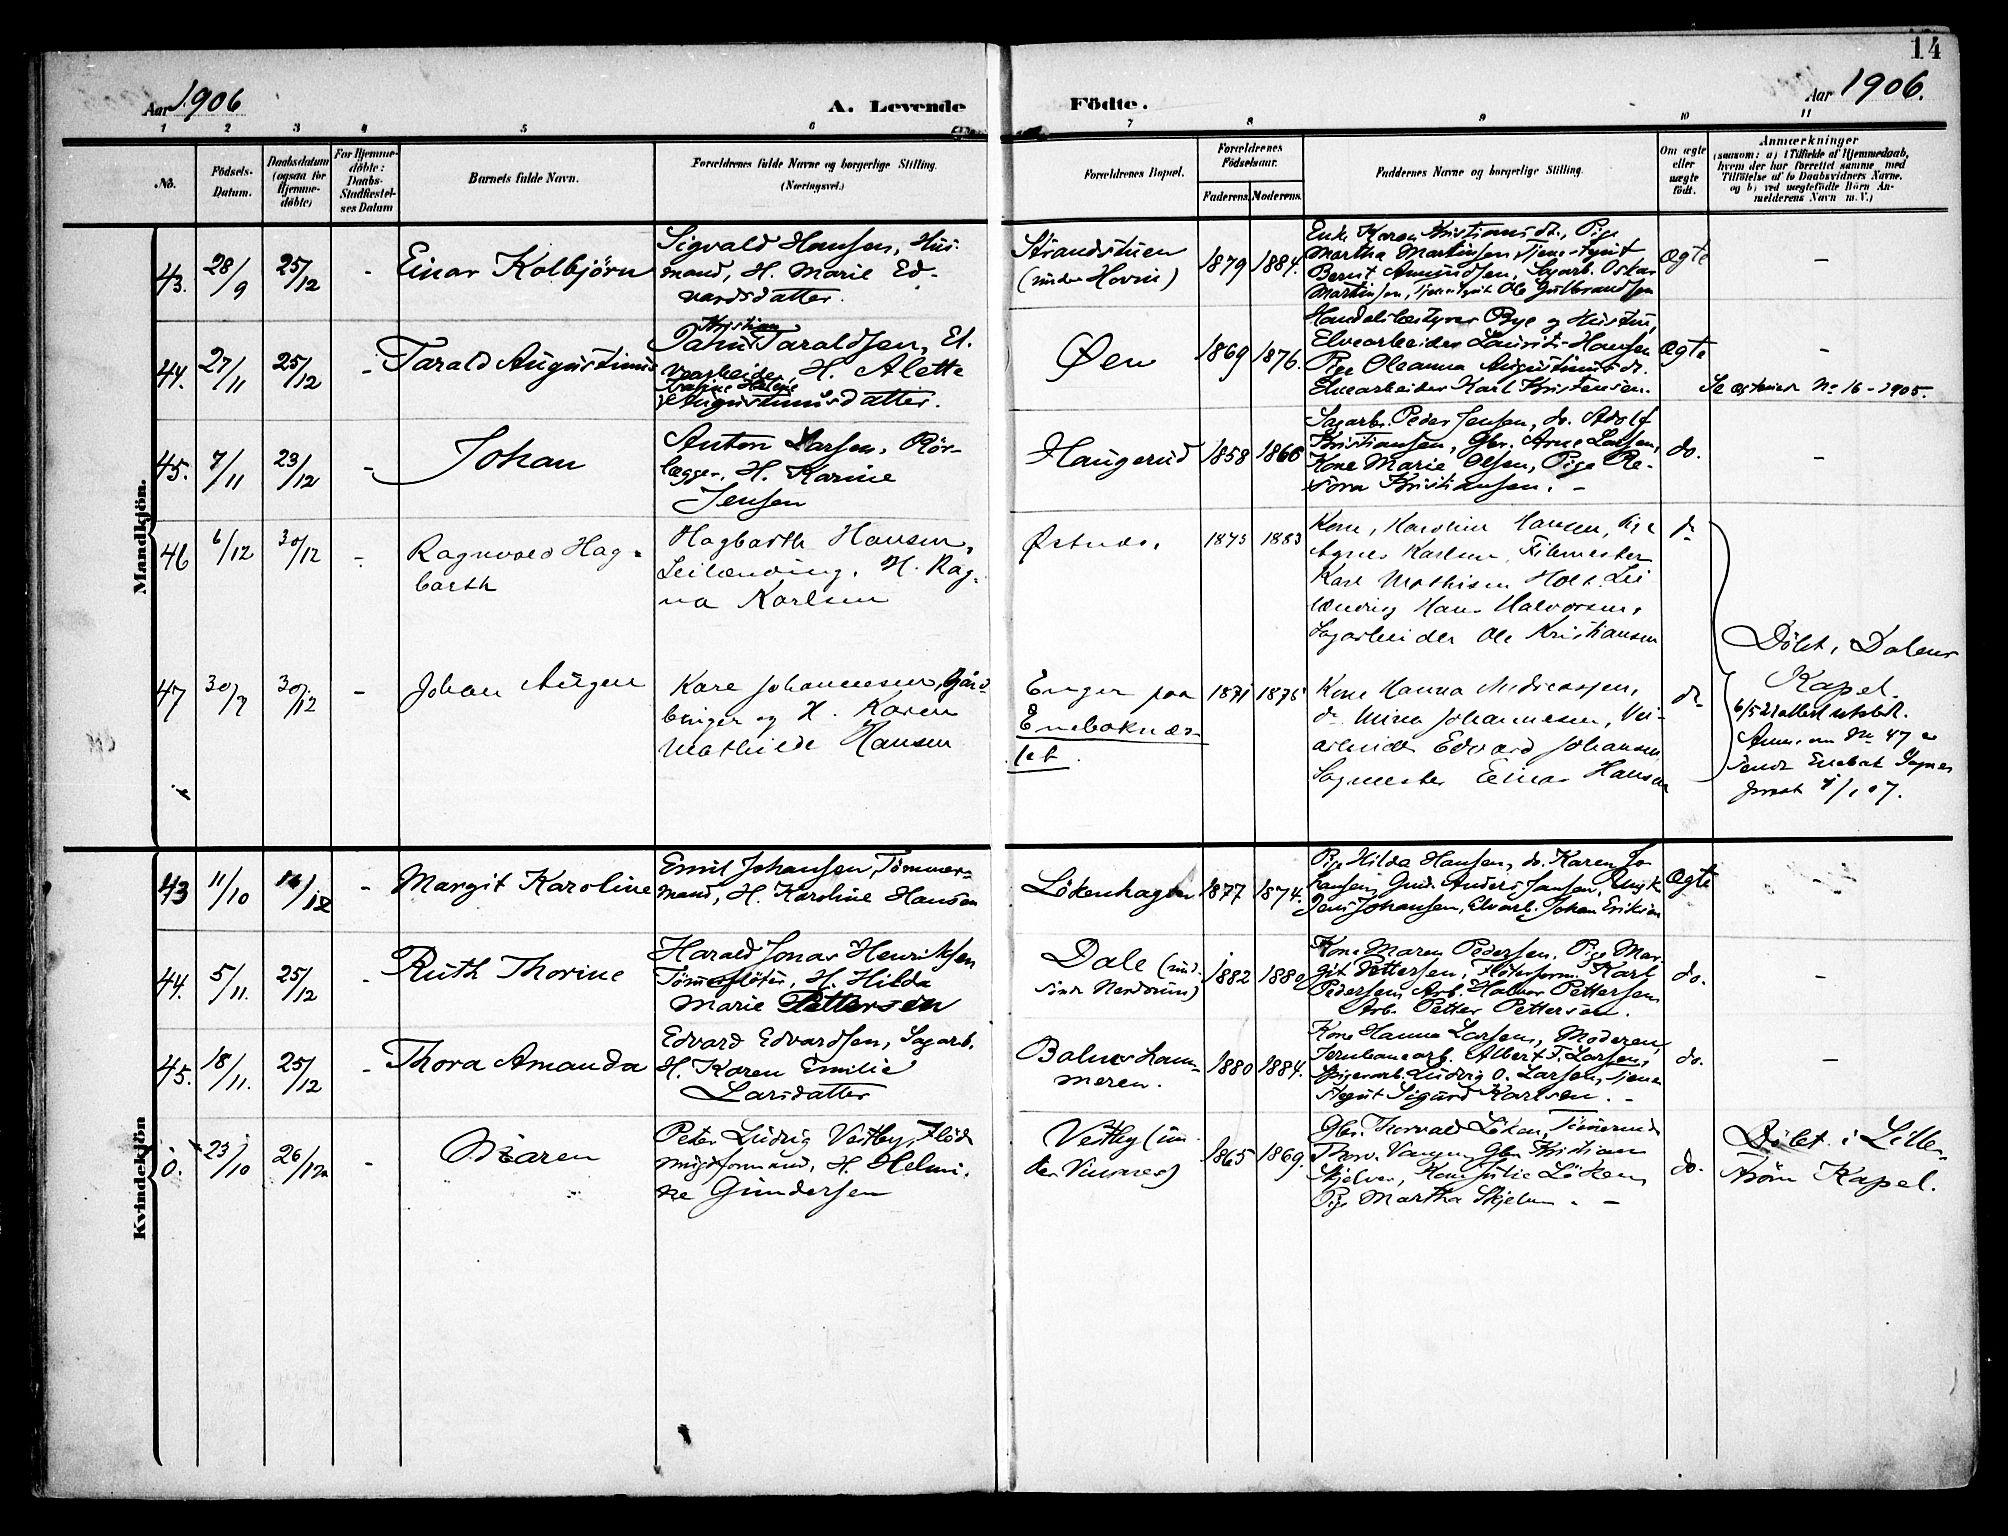 14
Aar 1906
A. Levende
Födte.
Aar 1906.
1 2 3 4 5 6 7 8 9 10 11
No.
Födsels-
Datum.
Daabsdatum
(ogsaa for
Hjemme-
döbte)
For Hjemme-
döbte:
Daabs-
Stadfæstel-
ses Datum
Barnets fulde Navn.
Forældrenes fulde Navne og borgerlige Stilling.
(Næringsvei.)
Forældrenes Bopæl.
Forældrenes
Födselsaar.
Faderens.
Moderens.
Faddernes Navne og borgerlige Stilling.
Om ægte
eller
uægte
födt.
Anmærkninger
(saasom: a) i Tilfælde af Hjemmedaab,
hvem der har forrettet samme med
Tilföielse af to Daabsvidners Navne,
og b) ved uægtefödte Börn An-
melderens Navn m. V.)
Mandkjön.
43. 28/9 25/12 - Einar Kolbjörn
Sigvald Hansen, Hus
mand, H. Marie Ed-
vardsdatter.
Strandstuen
(under Hovin)
1879 1884.
Enke Karen Kristiansdr., Pige
Martha Martinsen, Tjenestgut
Bernt Amundsen, Sagarb. Oskar
Martinsen, Tjenestgut Ole Gulbrandsen
Ægte -
44. 27/11 25/12 - Tarald Augustinus
Kristian
Taraldsen, El-
vearbeider, H. Alette
Augustinusdatter.
Øen
1869 1876.
Handelsbestyrer Bye og Hustru,
Elvearbeider Laurits Hansen
Pige Oleanna Augustinusdr.
Elvearbeider Karl Kristensen.
Ægte -
Se No 16 - 1905.
45. 7/11 23/12 - Johan
Anton Larsen, Rör-
lægger, H. Karine
Jensen
Haugerud
1858 1866
Sagarb. Peder Jensen, do. Adolf
Kristiansen, Gbr. Arne Larsen,
Kone Marie Olsen, Pige
Kristiansen. -
do. -
46 6/12 30/12 - Ragnvald Hag-
barth
Hagbarth Hansen,
Leilænding, H. Rag-
na Karlsen
1875 1883
Kone, Karoline Hansen, Pige
Agnes Karlsen, Filemester
Karl Mathisen Holt, Lei
lænding Hans Halvorsen,
Sagarbeider Ole Kristiansen
do
47 30/9 30/12 - Johan Jörgen
Karl Johannesen, Gård-
bruger og H. Karen
Mathilde Hansen
Enger paa
Enebaknes-
set.
1871 1875
Kone Hanna
do Mina Johannesen, Vei-
arbeider Edvard Johansen
Sagmester Einar Hansen
do
Döbt i Dalens
Kapel.
6/5 21 attest utstedt.
Anm. om No 47 er
sendt Enebak Sogne
prest /1 07.
Kvindekjön
43 11/10 16/12 - Margit Karoline
Emil Johansen, Tömmer-
mand, H. Karoline Hansen
Lökenhagen
1877 1874.
Pige Hilda Hansen, do. Karen Jo
hansen, Gmd. Anders Jansen, Ungk.
Jens Johansen, Elvarb. Johan Eriksen
Ægte
44. 5/11. 25/12 - Ruth Thorine
Harald Jonas Henriksen
Tömmerflöter, H. Hilda
Marie Pettersen
Dale (und.
söndr Nerdrum)
1882 1882
Kone Maren Pedersen, Pige Mar-
git Pettersen, Flöterform. Karl
Pedersen, Arb. Halvor Pettersen,
Arb. Petter Pettersen.
do. -
45. 18/11. 25/12 - Thora Amanda
Edvard Edvardsen, Sagarb.
H. Karen Emilie
Larsdatter
Balnes ham-
meren.
1880 1884.
Kone Hanna Larsen, Moderen,
Jernbanearb. Albert T. Larsen,
Spigerarb. Ludvig O. Larsen, Tjene
stegut Sigurd Karlsen. -
do. -
0. 23/10 26/12 - Maren
Peter Ludvig Vestby, Flöd
ningsformand, H. Helmi-
ne Gundersen
Vestby (un-
der Vinsnes)
1865 1869.
Gbr. Thorvald Löken, Tömmermd
Thorv. Vangen, Gbr. Kristian
Skjelver, Kone Julie Löken,
Pige Martha Skjelver. -
do.
Döbt i Lille-
ström Kapel.